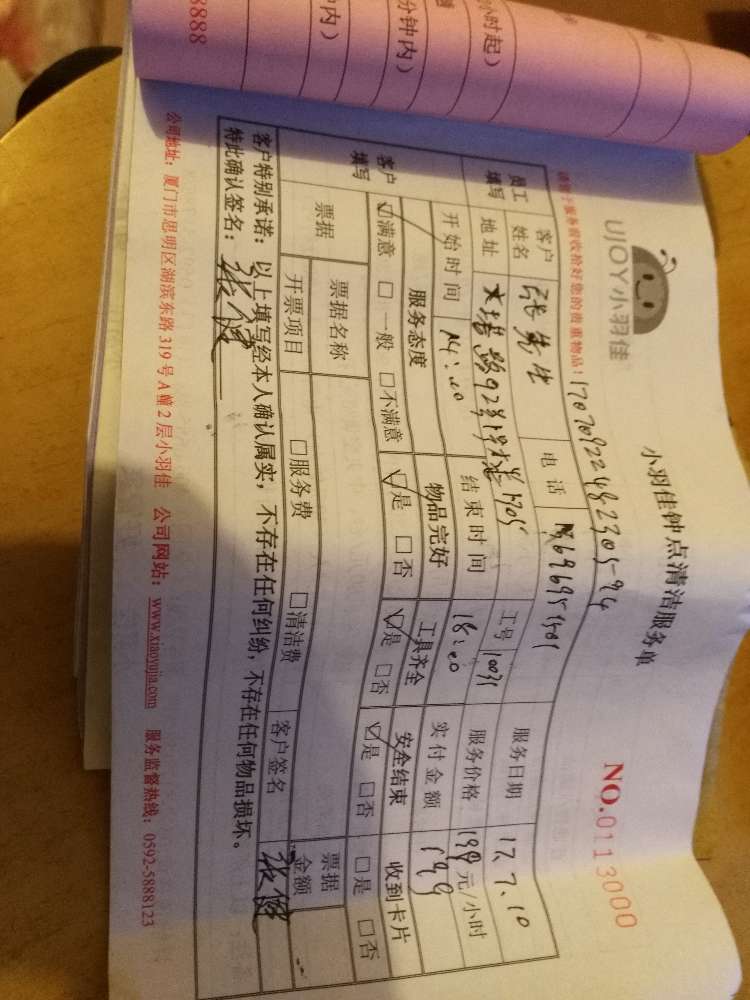 8888
小时起）
分钟内）
内）
UJOY小羽佳
小羽佳钟点清洁服务单
NO.0113000
请您于服务前收拾好您的贵重物品！
员工填写
客户姓名
张先生
电话
工号
服务日期
17.7.10
地址
服务价格
199元/小时
开始时间
14:00
结束时间
18:00
实付金额
199
客户填写
服务态度
物品完好
工具齐全
安全结束
收到卡片
☑满意 □一般 □不满意
☑是 □否
☑是 □否
☑是 □否
□是 □否
票据
票据名称
开票项目
□服务费
□清洁费
客户签名
票据金额
客户特别承诺：以上填写经本人确认属实，不存在任何纠纷，不存在任何物品损坏。
特此确认签名：
公司地址：厦门市思明区湖滨东路319号A幢2层小羽佳 公司网站：www.xiaoyujia.com 服务监督热线：0592-5888123